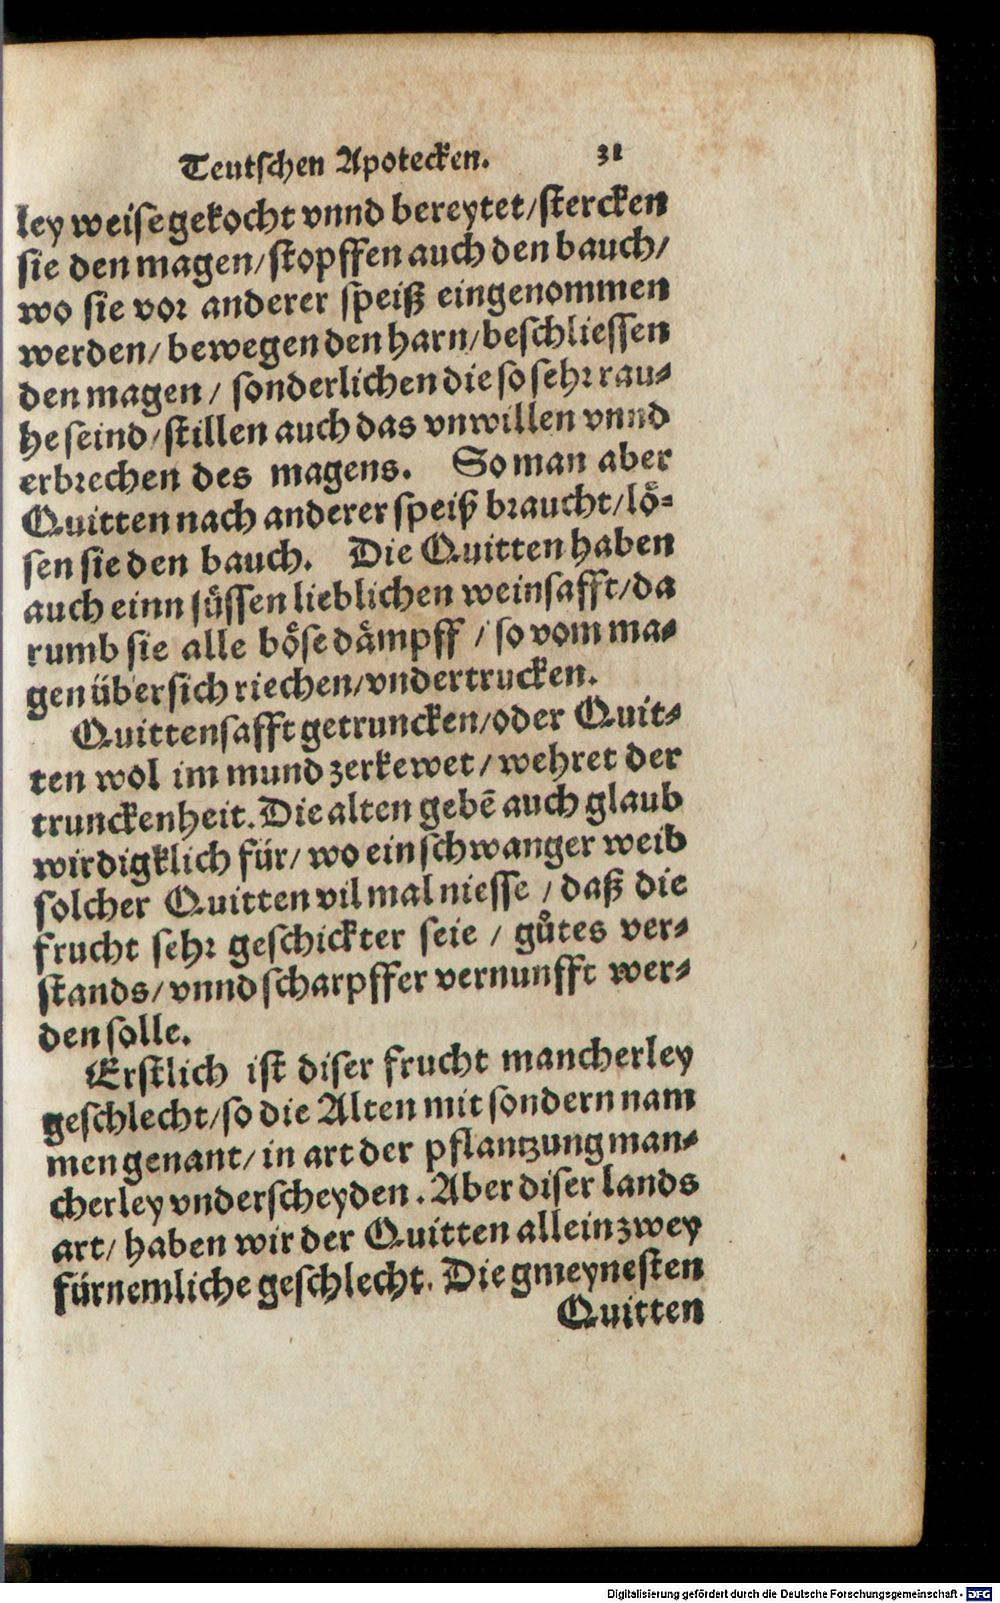 Teutschen Apotecken. 31
ley weise gekocht vnnd bereytet/ stercken
sie den magen/ stopffen auch den bauch/
wo sie vor anderer speiß eingenommen
werden/ bewegen den harn/ beschliessen
den magen / sonderlichen die so sehr rau-
he seind/ stillen auch das vnwillen vnnd
erbrechen des magens. So man aber
Quitten nach anderer speiß braucht/ lö-
sen sie den bauch. Die Quitten haben
auch einn süssen lieblichen weinsafft/ da
rumb sie alle böse dämpff / so vom ma-
gen übersich riechen/ vndertrucken.
Quittensafft getruncken/ oder Quit-
ten wol im mund zerkewet / wehret der
trunckenheit. Die alten gebē auch glaub
wirdigklich für/ wo ein schwanger weib
solcher Quitten vil mal niesse / daß die
frucht sehr geschickter seie / gůtes ver-
stands/ vnnd scharpffer vernunfft wer-
den solle.
Erstlich ist diser frucht mancherley
geschlecht/ so die Alten mit sondern nam
men genant/ in art der pflantzung man-
cherley vnderscheyden. Aber diser lands
art/ haben wir der Quitten allein zwey
fürnemliche geschlecht. Die gmeynesten
Quitten
Digitalisierung gefördert durch die Deutsche Forschungsgemeinschaft - DFG